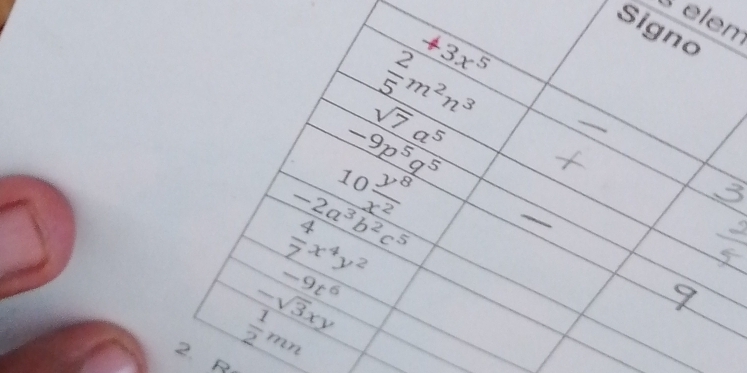 s elem
Signo
+3x⁵ − 3
2/5 m²n³ +
√7 a⁵
−9p⁵q⁵ − 9
10 y⁸/x²
−2a³b²c⁵
4/7 x⁴y²
−9t⁶
−√3xy
1/2 mn
2